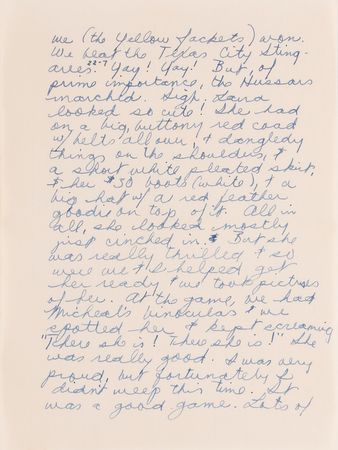 we (the Yellow Jackets) won.
We beat the Texas City Sting-
arees. 22-7 Yay! Yay! But, of
prime importance, the Hussars
marched. Sigh. Land
looked so cute! She had
on a big, buttony red coat
w/ belts all over, & dangledy
things on the shoulders, &
a short white pleated skirt,
& her $30 boots (white), & a
big hat w/ a red feather
goodie on top of it. All in
all, she looked mostly
just cinched in. But she
was really thrilled & so
were we & I helped get
her ready & we took pictures
of her. At the game, we had
Micheal's binoculars & we
spotted her & kept screaming
"There she is! There she is!" She
was really good. I was very
proud, but fortunately I
didn't weep this time. It
was a good game. Lots of